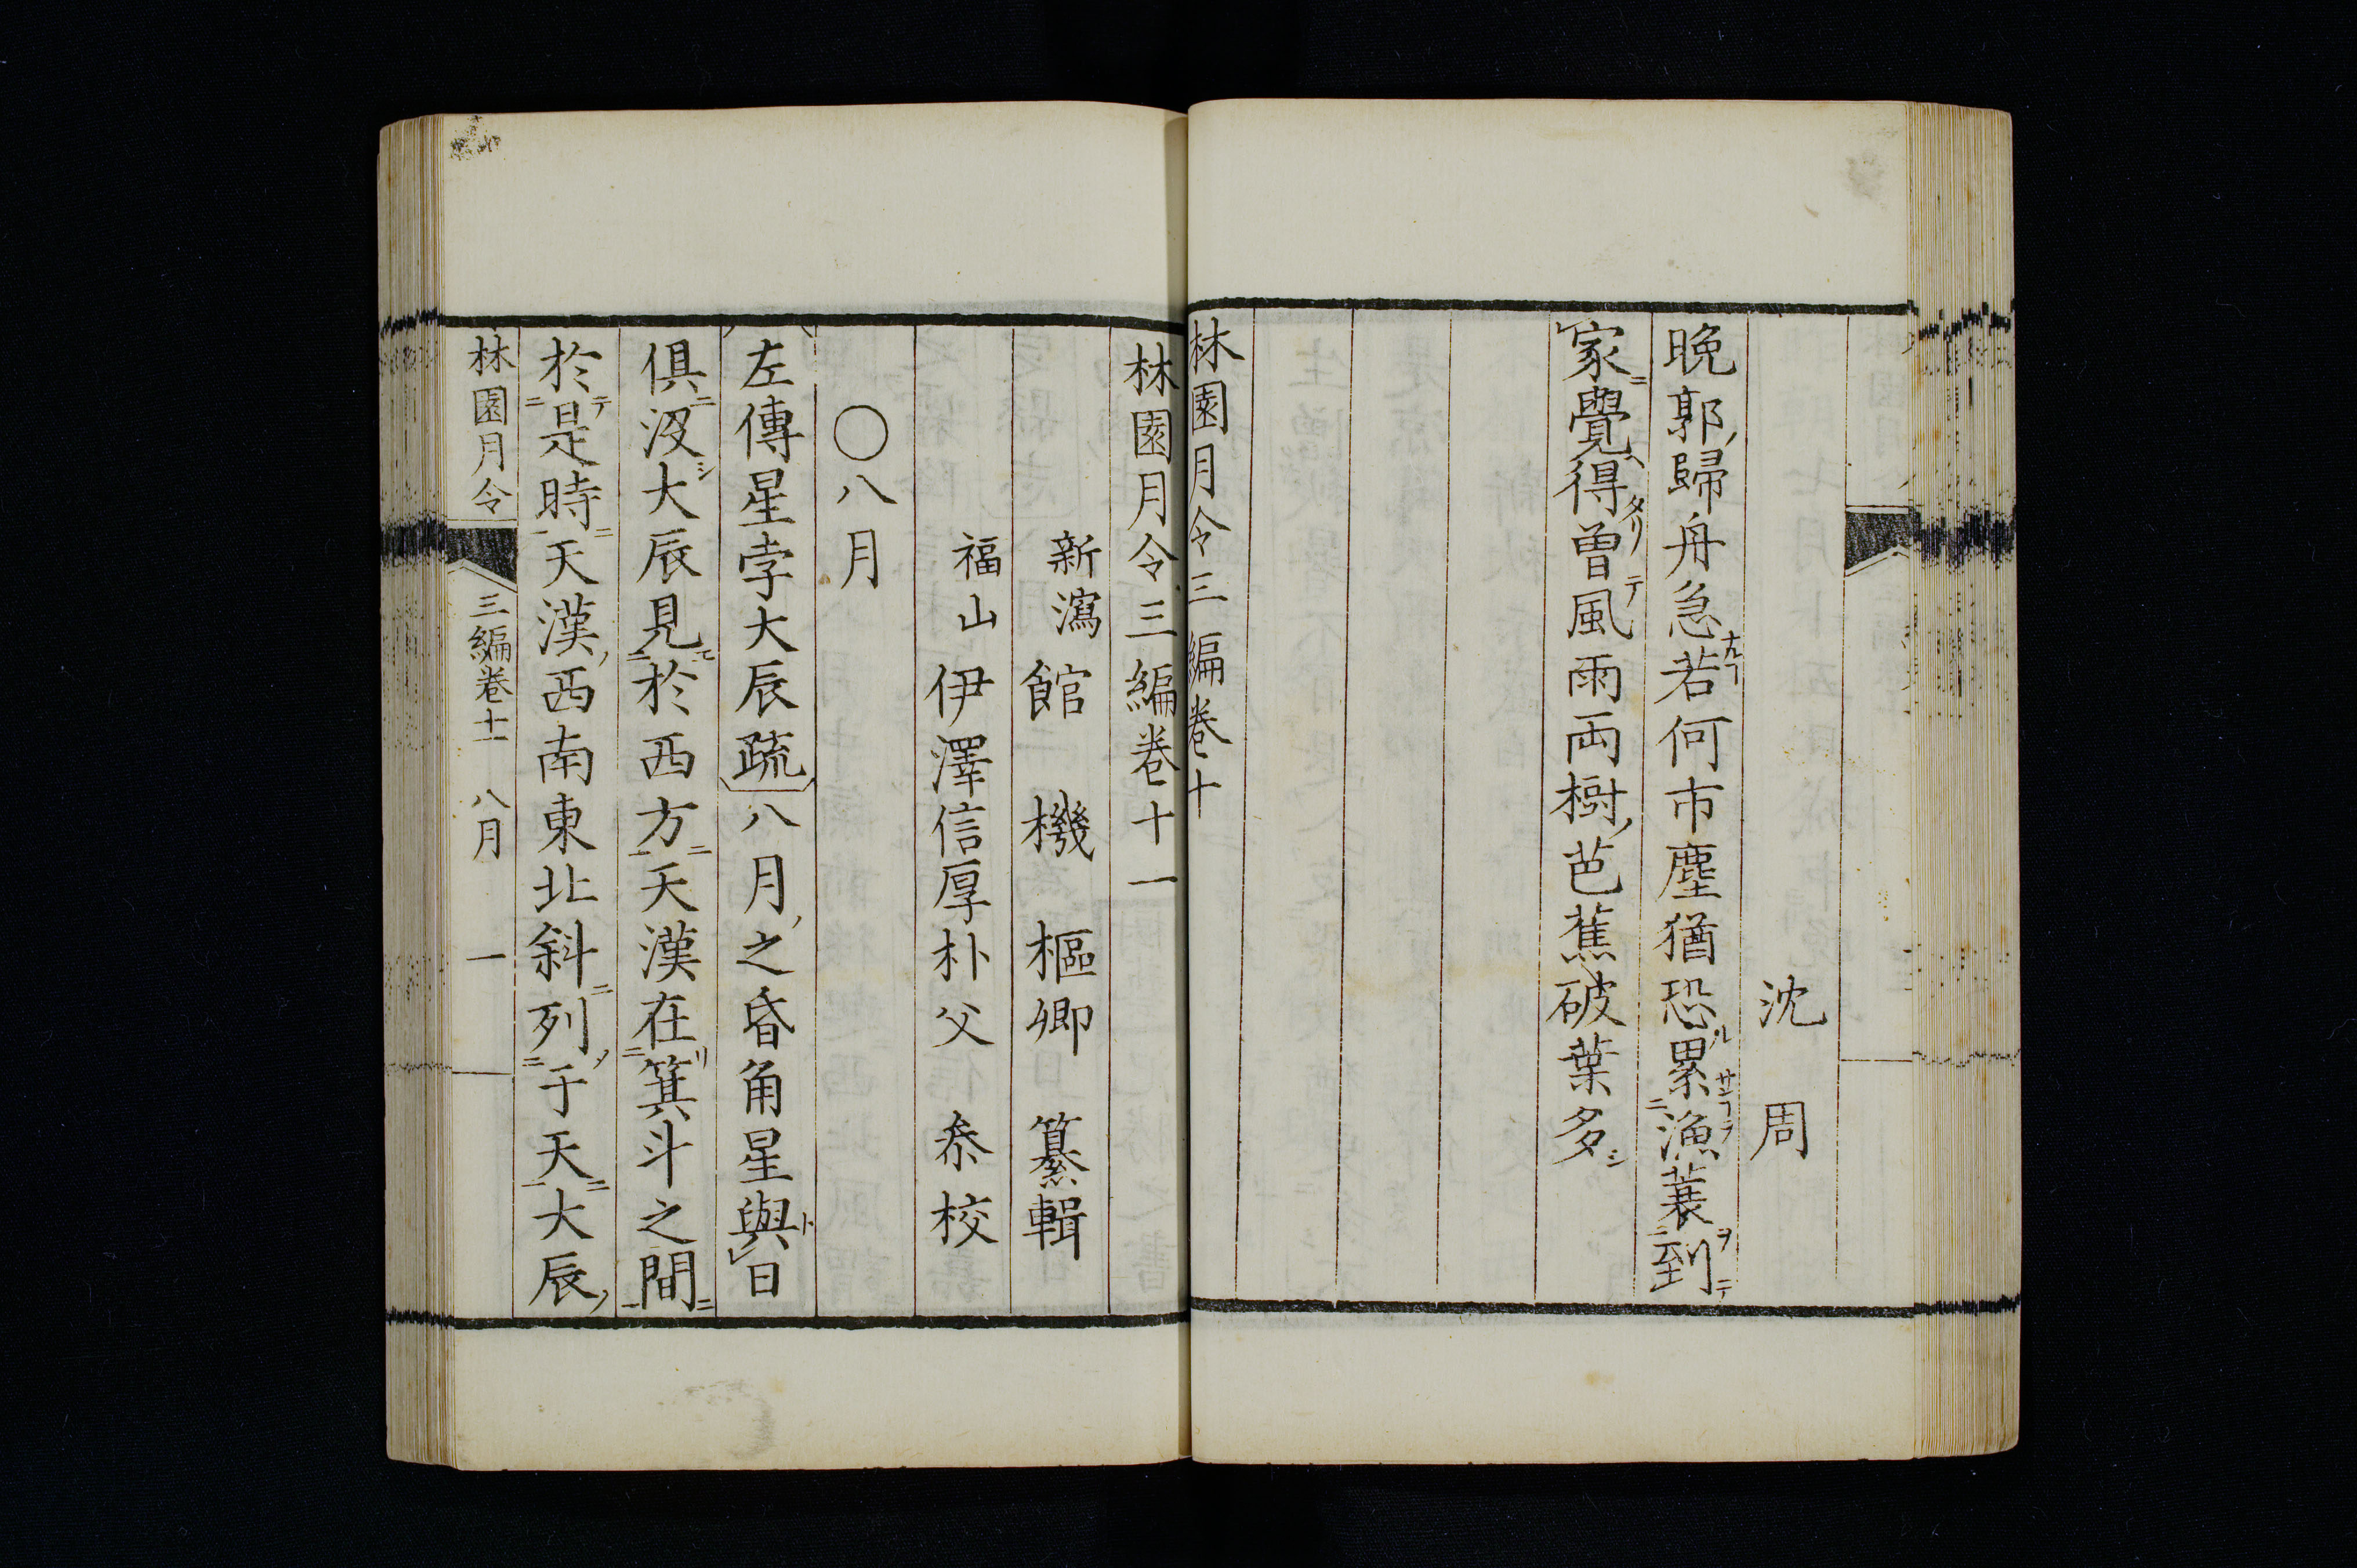 沈周
晚郭歸舟急若何市塵猶恐累漁蓑到
家覺得曽風雨両樹芭蕉破葉多
林園月令三編卷十
林園月令三編卷十一
新瀉館機樞卿纂輯
福山伊澤信厚朴父叅校
〇八月
左傳星孛大辰疏八月之昏角星與日
俱沒大辰見於西方天漢在箕斗之間
於是時天漢西南東北斜列于天大辰
林園月令 三編卷十一 八月 一